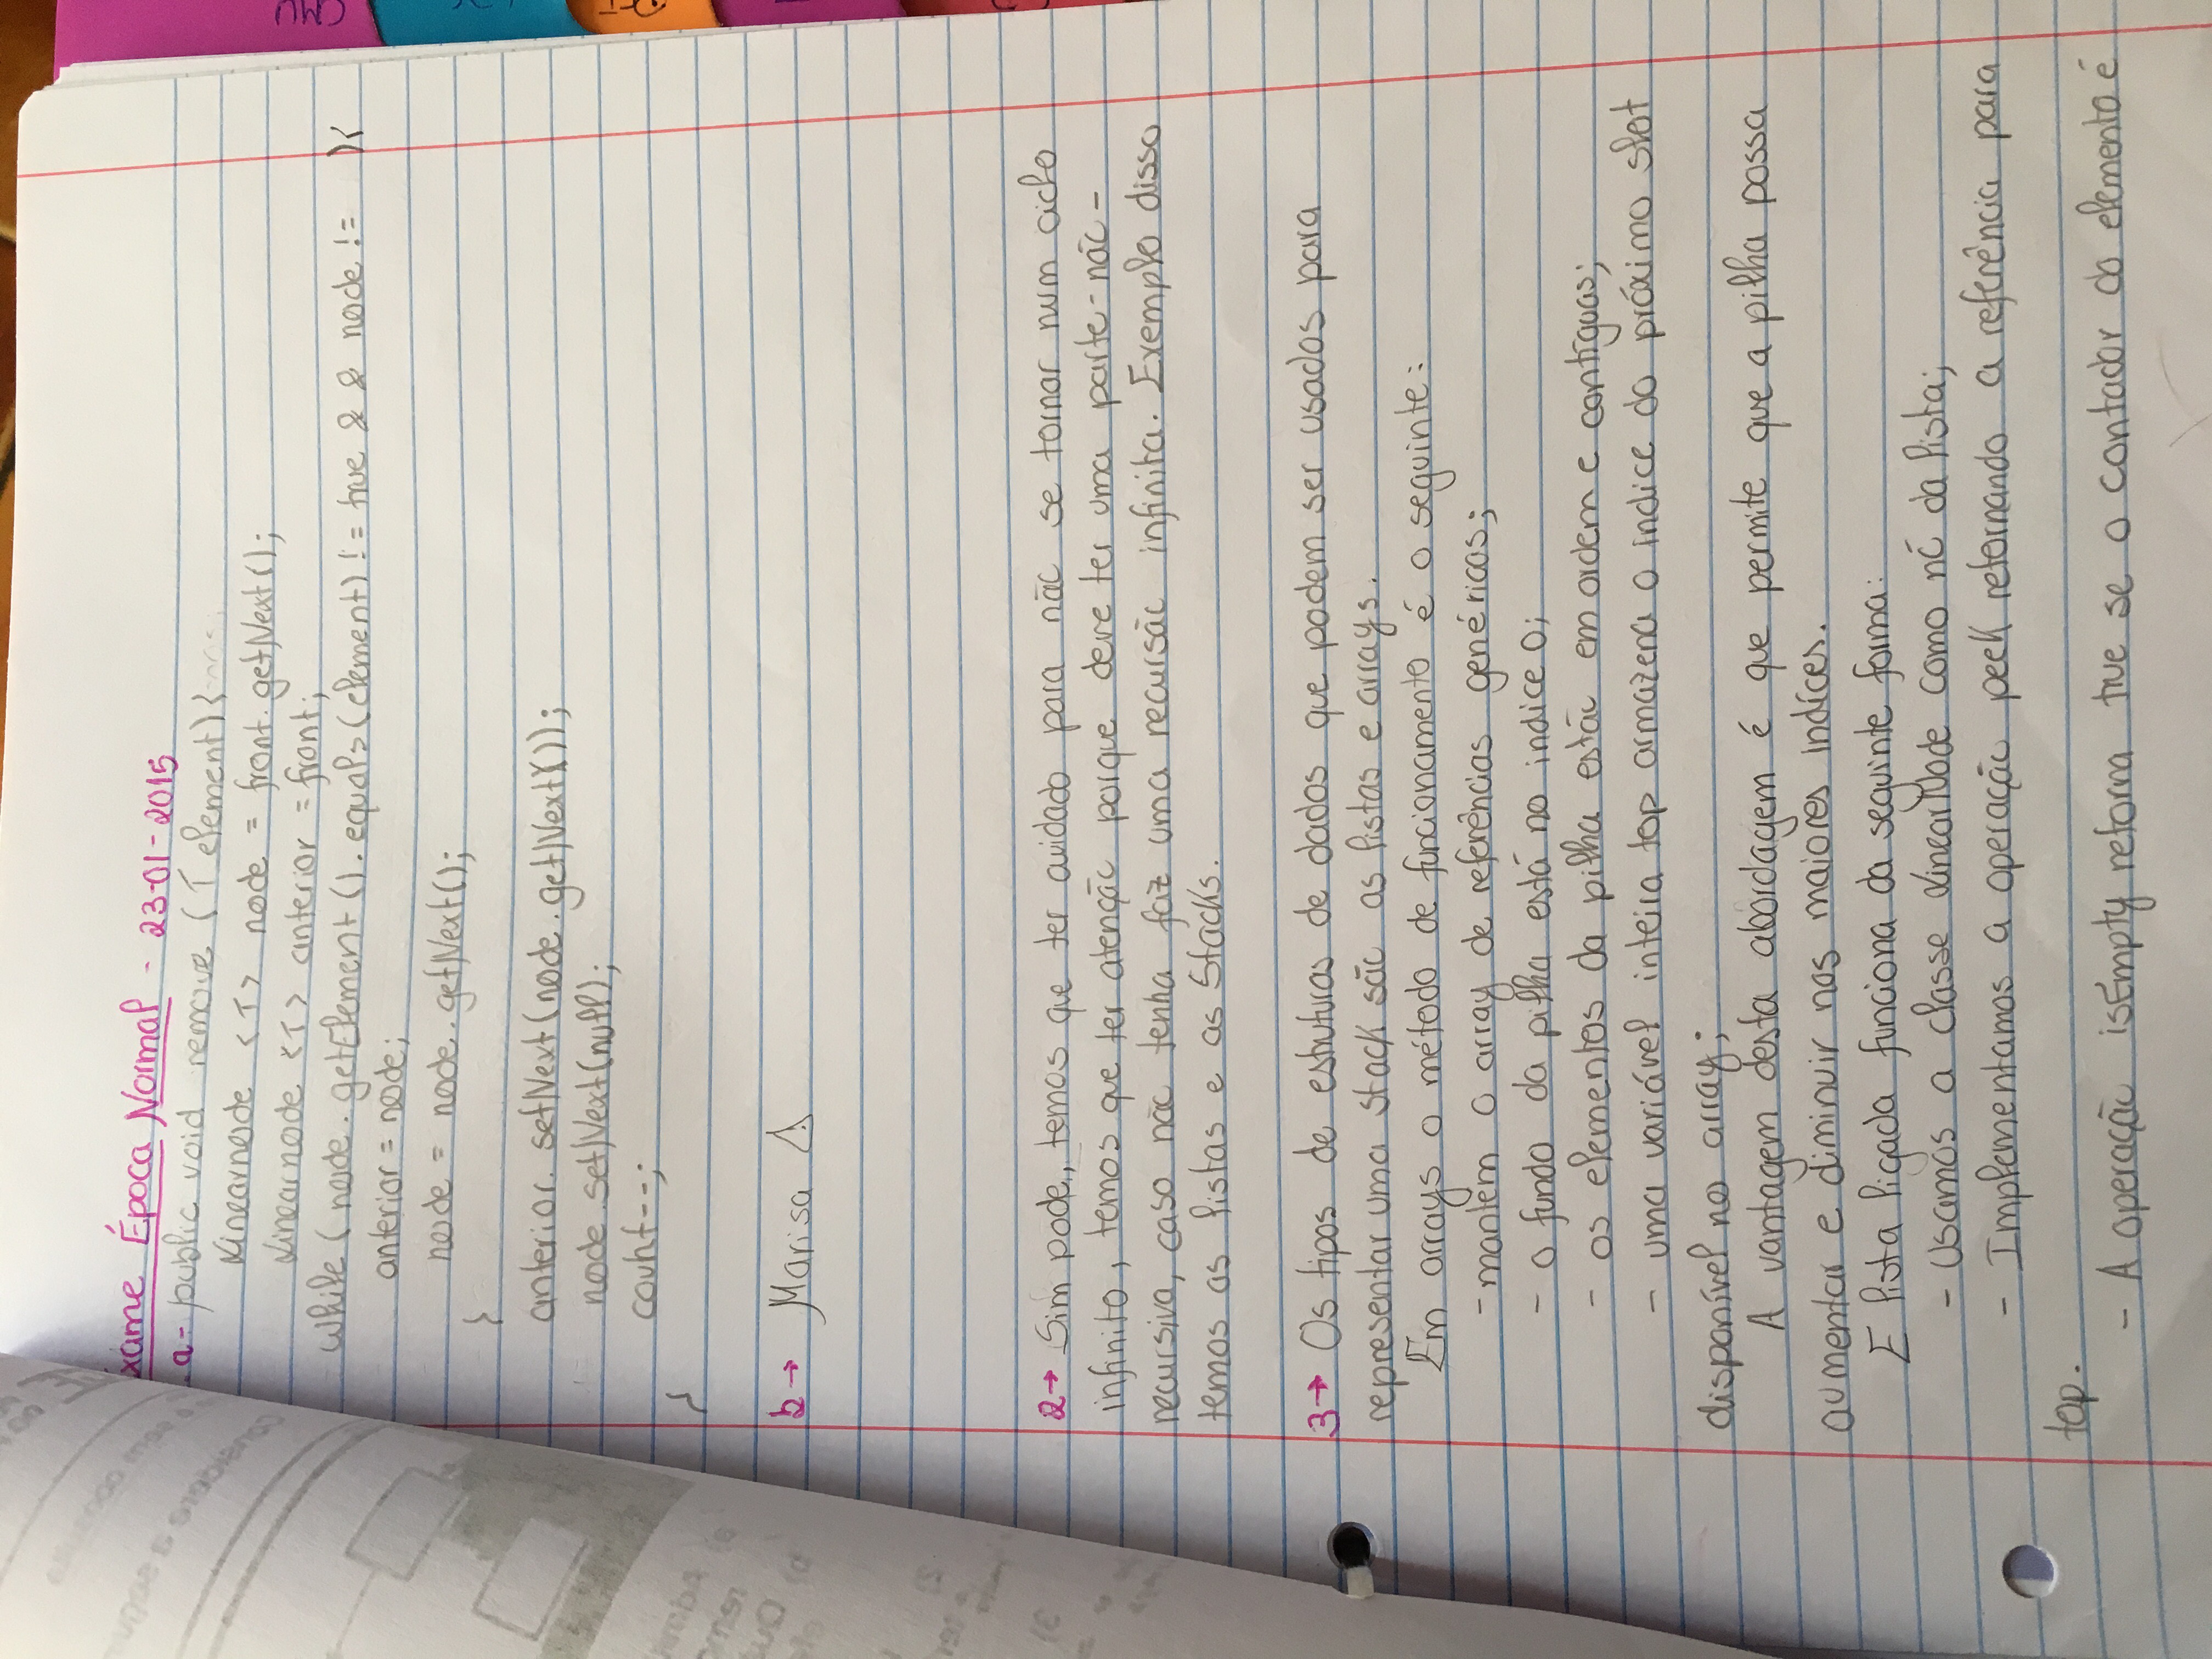 xame Época Normal - 23-01-2015
.a- public void remove (T element){
Linearnode <T> node = front.getNext();
Linearnode <T> anterior = front;
while (node.getElement().equals(element) != true && node != ){
anterior = node;
node = node.getNext();
}
anterior.setNext(node.getNext());
node.setNext(null);
count--;
}
b→ Marisa ⚠
2→ Sim pode, temos que ter cuidado para não se tornar num ciclo
infinito, temos que ter atenção porque deve ter uma parte-não-
recursiva, caso não tenha faz uma recursão infinita. Exemplo disso
temos as listas e as Stacks.
3→ Os tipos de estruturas de dados que podem ser usados para
representar uma stack são as listas e arrays.
Em arrays o método de funcionamento é o seguinte:
- mantém o array de referências genéricos;
- o fundo da pilha está no indice 0;
- os elementos da pilha estão em ordem e contíguas;
- uma variável inteira top armazena o indice do próximo slot
disponível no array;
A vantagem desta abordagem é que permite que a pilha possa
aumentar e diminuir nos maiores indíces.
E lista ligada funciona da seguinte forma:
- Usamos a classe LinearNode como nó da lista;
- Implementamos a operação peek retornando a referência para
top.
- A operação isEmpty retorna true se o contador do elemento é